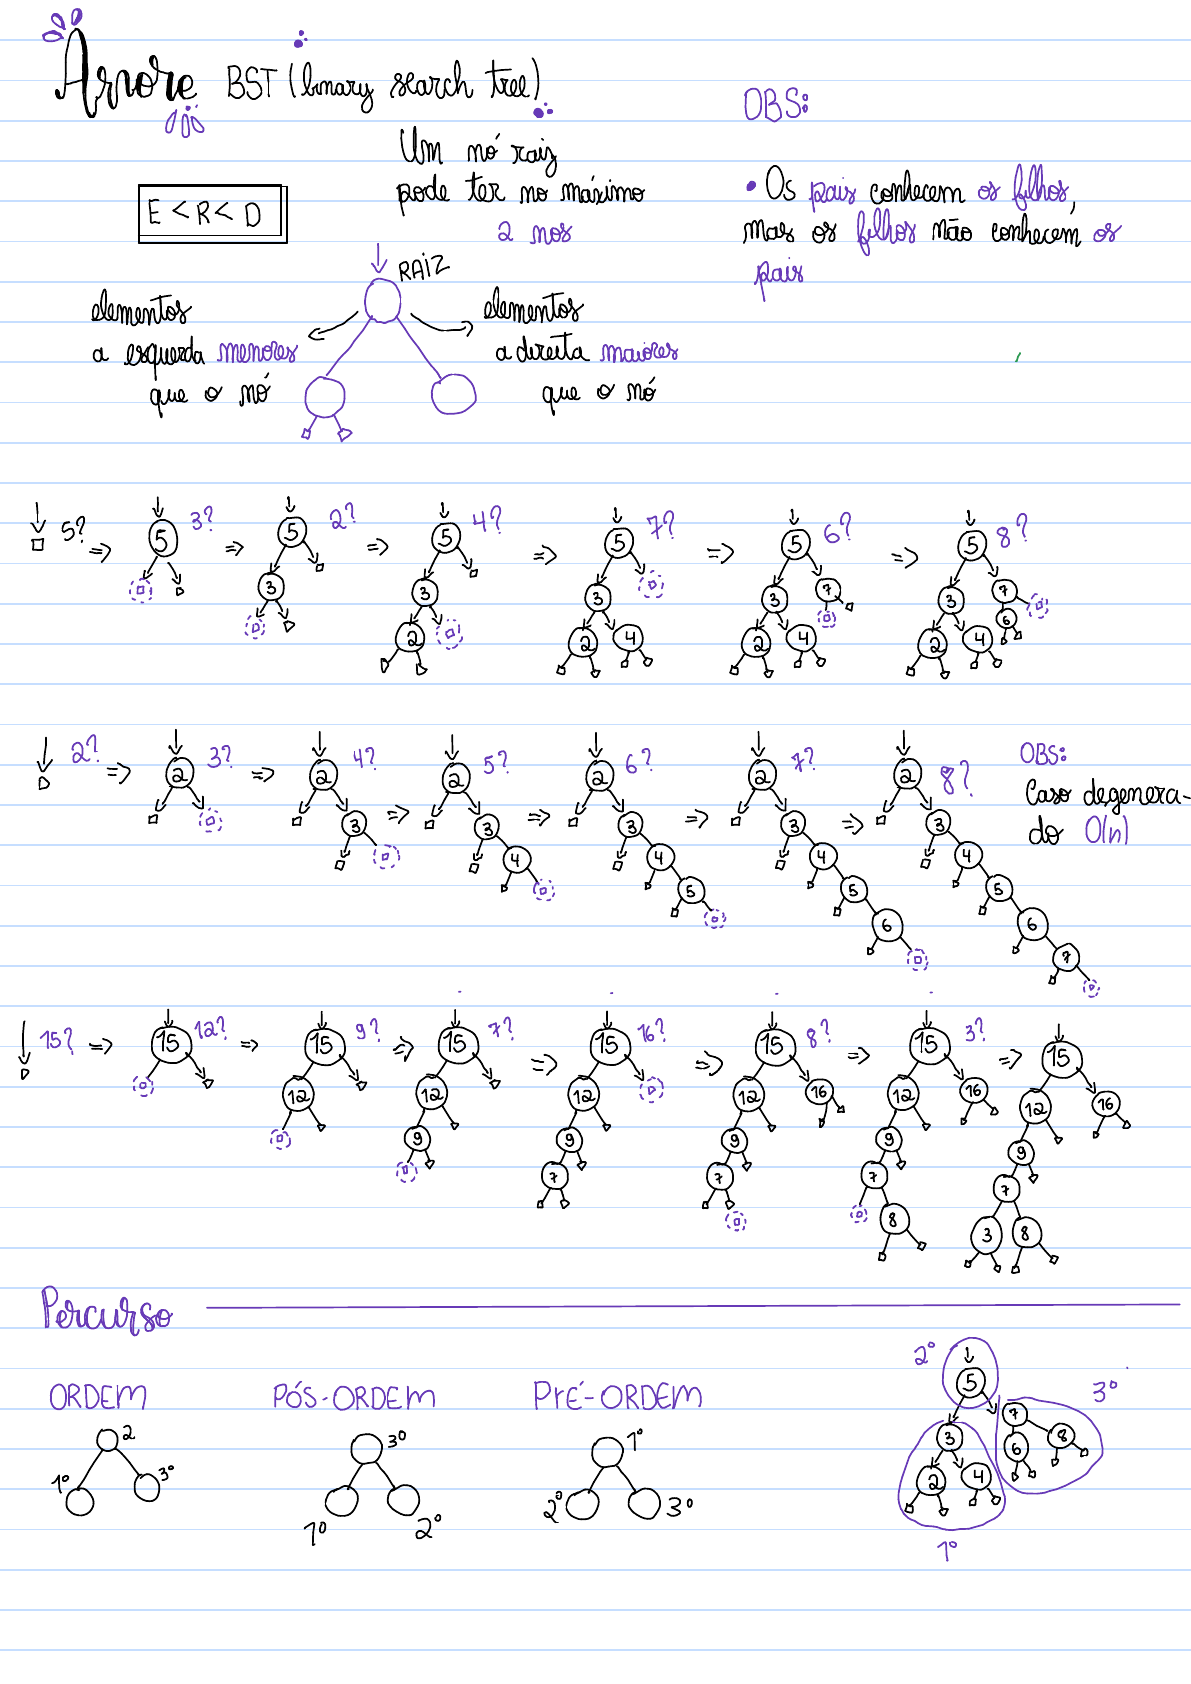 Arvore BST (binary search tree)
E < R < D
Um nó raiz
pode ter no máximo
2 nos
RAIZ
elementos
a esquerda menores
que o nó
elementos
a direita maiores
que o nó
OBS:
• Os pais conhecem os filhos,
mas os filhos não conhecem os
pais
5? => 5 3? => 5 2? => 5 4? => 5 7? => 5 6? => 5 8?
3 3 3 3 7 3 7
2 2 4 2 4 2 4 6
2? => 2 3? => 2 4? => 2 5? => 2 6? => 2 7? => 2 8?
3 3 3 3 3
4 4 4 4
5 5 5
6 6
7
OBS:
Caso degenera-
do O(n)
15? => 15 12? => 15 9? => 15 7? => 15 16? => 15 8? => 15 3? => 15
12 12 12 12 16 12 16 12 16
9 9 9 9 9
7 7 7 7
8 3 8
Percurso
ORDEM
2
1º 3º
PÓS-ORDEM
3º
1º 2º
PRÉ-ORDEM
1º
2º 3º
2º
5
3º
3 7
2 4 6 8
1º